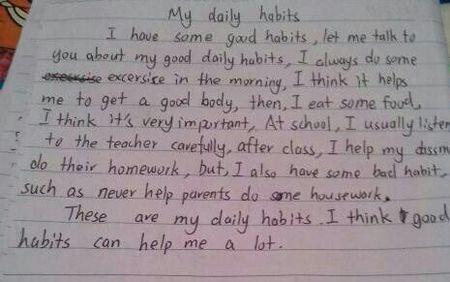 My daily habits
I have some good habits, let me talk to
you about my good daily habits, I always do some
excersise in the morning, I think it helps
me to get a good body, then, I eat some food,
I think it's very important, At school, I usually listen
to the teacher carefully, after class, I help my
do their homework, but, I also have some bad habit,
such as never help parents do some housework.
These are my daily habits. I think good
habits can help me a lot.